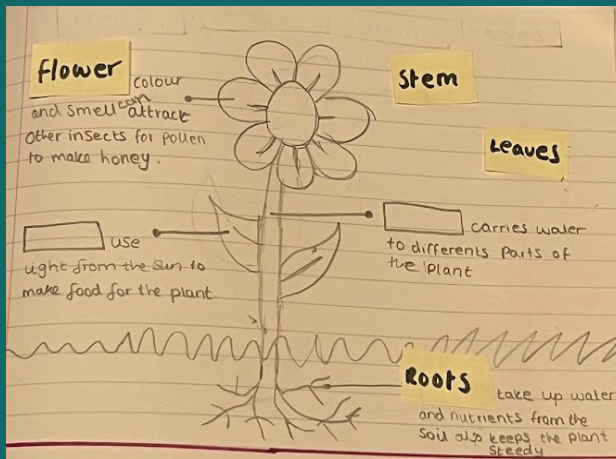 Flower colour
and smell can attract
other insects for pollen
to make honey.
Stem
Leaves
use
light from the sun to
make food for the plant
carries water
to differents parts of
the plant
Roots take up water
and nutrients from the
soil also keeps the plant
steedy